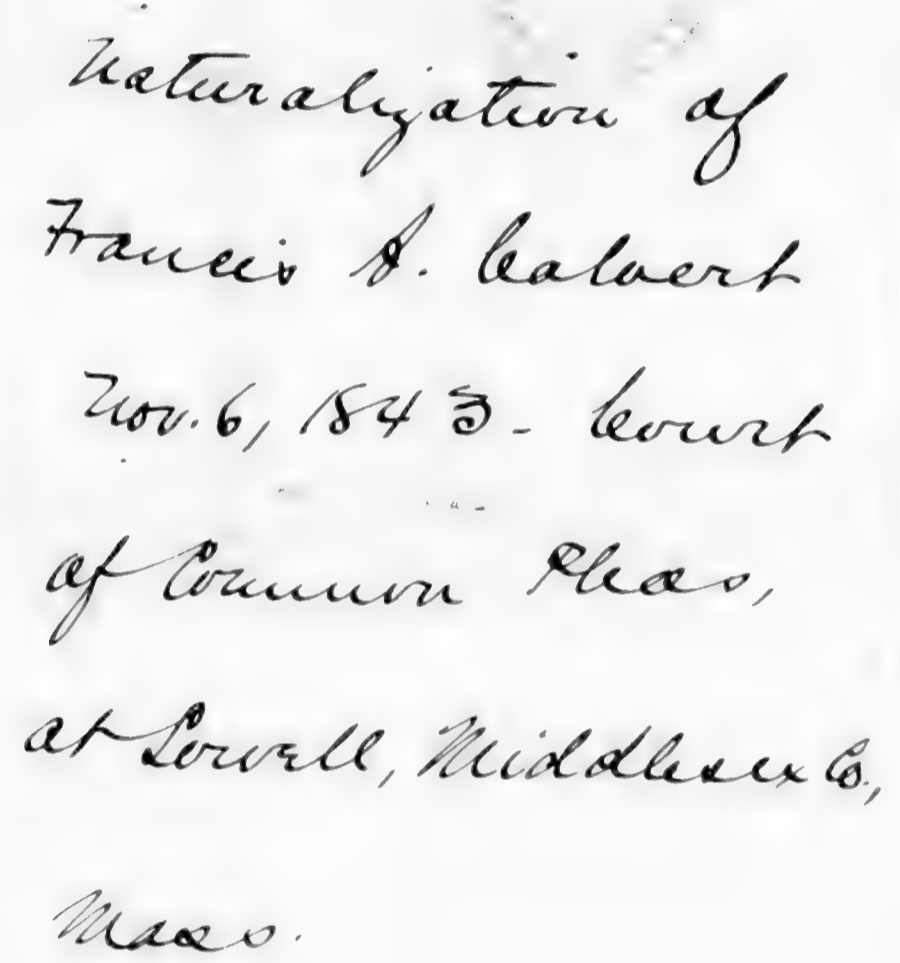 Naturalization of
Francis A. Calvert
Nov. 6, 1843 - Court
of Common Pleas,
at Lowell, Middlesex Co.,
Mass.